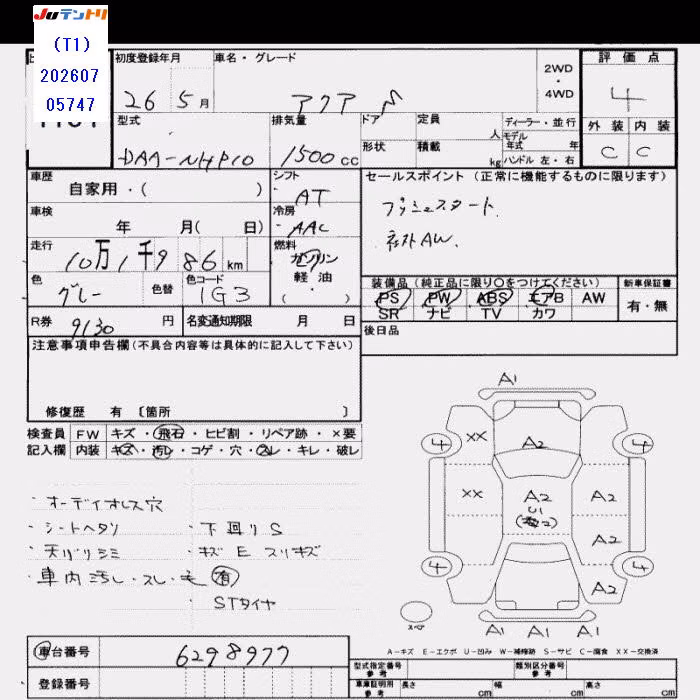 Juテントリ
(T1)
202607
05747
初度登録年月 車名・グレード 2WD・4WD 評価点
26年 5月 アクア 4
型式 排気量 ドア 定員 人 ディーラー・並行 外装 内装
DAA-NHP10 1500cc 形状 積載 kg モデル年式 年 ハンドル 左・右 C C
車歴 自家用・( ) シフト AT
セールスポイント (正常に機能するものに限ります)
車検 年 月( 日) 冷房 AAC
プッシュスタート
社外AW.
走行 10万1千986km 燃料 ガソリン・軽油・( )
色 グレー 色替 色コード 1G3
装備品 (純正品に限り○をつけてください) 新車保証書
PS PW ABS エアB AW 有・無
SR ナビ TV カワ
R券 9130円 名変通知期限 月 日
後日品
注意事項申告欄 (不具合内容等は具体的に記入して下さい)
修復歴 有 〔箇所 〕
検査員 FW キズ・飛石・ヒビ割・リペア跡・×要
記入欄 内装 キズ・汚レ・コゲ・穴・スレ・キレ・破レ
・オーディオレス穴
・シートヘタリ ・下廻りS
・天バリシミ ・キズ E スリキズ
・車内汚レ・スレ・毛 有
・STタイヤ
A1
4 XX A2 4
XX A2 A2
U1
A2
4 A2 4
スペア A1 A1 A1
A-キズ E-エクボ U-凹み W-補修跡 S-サビ C-腐食 XX-交換済
車台番号 6298977
型式指定番号 参考 類別区分番号 参考
登録番号
車庫証明用 参考 長さ cm 幅 cm 高さ cm